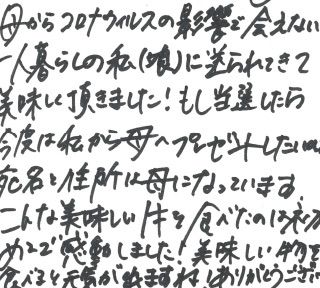 母からコロナウィルスの影響で会えない
一人暮らしの私(娘)に送られてきて
美味しく頂きました!もし当選したら
今度は私から母へプレゼントしたい
宛名と住所は母になっています。
こんな美味しい牛を食べたのは初
めてで感動しました!美味しい物を
食べると元気が出ますね!ありがとうござい